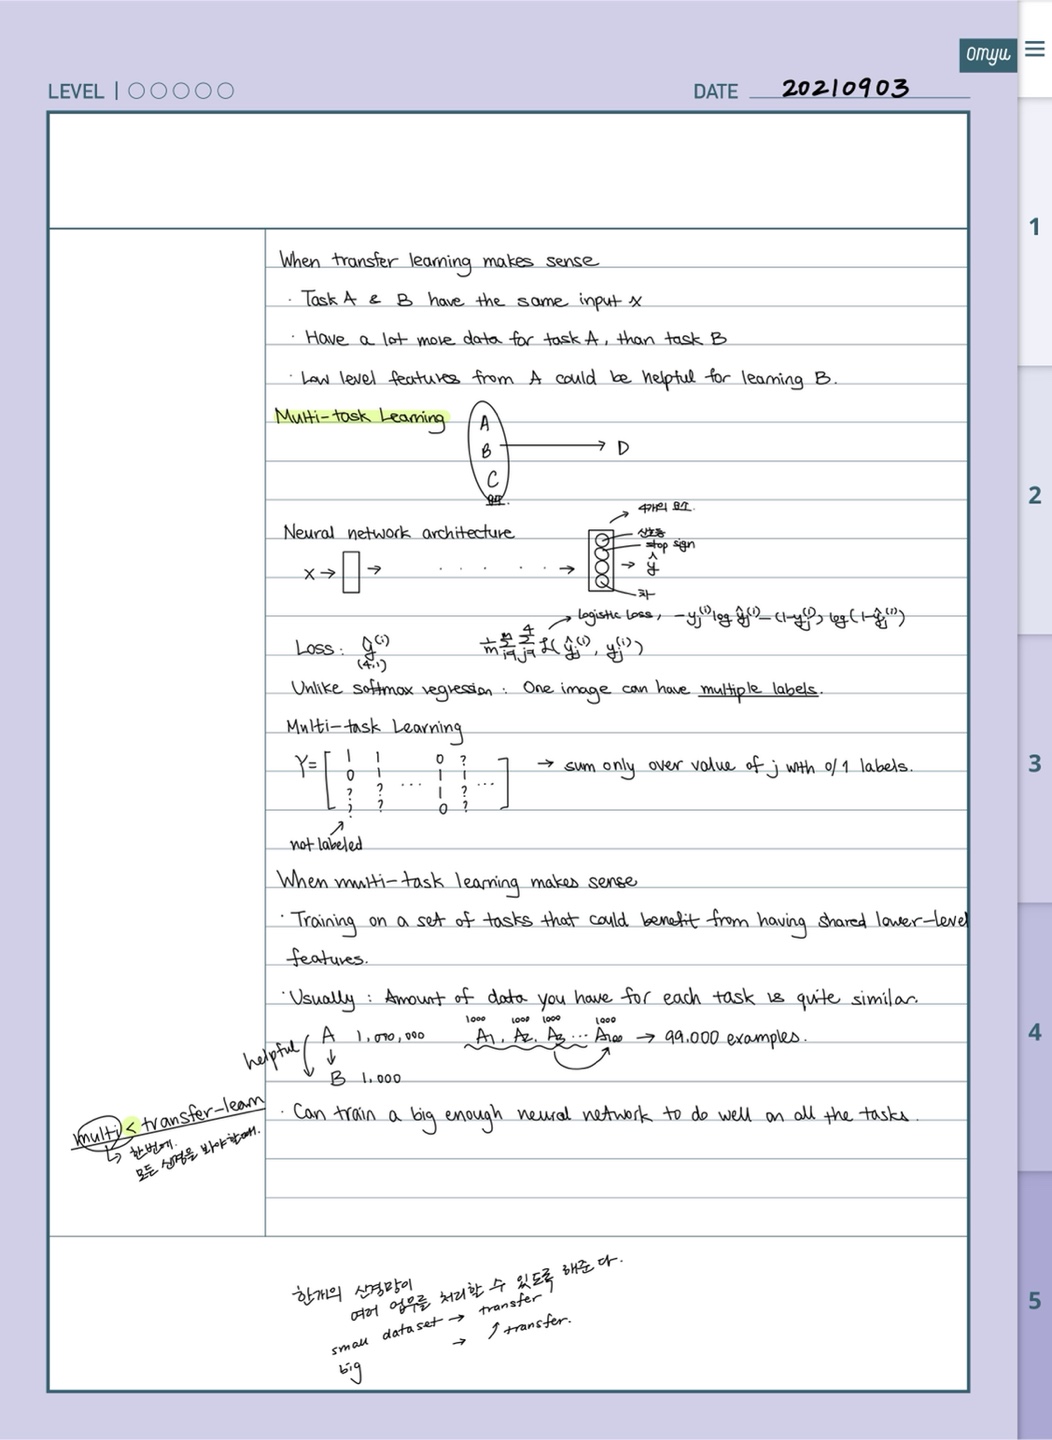 omyu
LEVEL
DATE 20210903
1
2
3
4
5
When transfer learning makes sense
· Task A & B have the same input x
· Have a lot more data for task A, than task B
· Low level features from A could be helpful for learning B.
Multi-task Learning
A
B → D
C
4개의 요소.
Neural network architecture
신호등
stop sign
X → → · · · · · → → ŷ
차
→ logistic loss, -yj^(i) log ŷj^(i) - (1-yj^(i)) log(1-ŷj^(i))
Loss: ŷ^(i) 1/m Σ Σ L(ŷj^(i), yj^(i))
(4,1)
Unlike softmax regression: One image can have multiple labels.
Multi-task Learning
Y= [ 1 1 0 ?
0 1 ··· 1 1 ··· ] → sum only over value of j with 0/1 labels.
? ? 1 ?
? ? 0 ?
not labeled
When multi-task learning makes sense
· Training on a set of tasks that could benefit from having shared lower-level
features.
· Usually: Amount of data you have for each task is quite similar.
1000 1000 1000 1000
helpful A 1,000,000 A1, A2, A3 ··· A100 → 99.000 examples.
↓
B 1.000
· Can train a big enough neural network to do well on all the tasks.
multi < transfer-learn
↳ 한번에.
모든 신경을 봐야할때.
한개의 신경망이
여러 업무를 처리할 수 있도록 해준다.
small dataset → transfer
big → ↑ transfer.